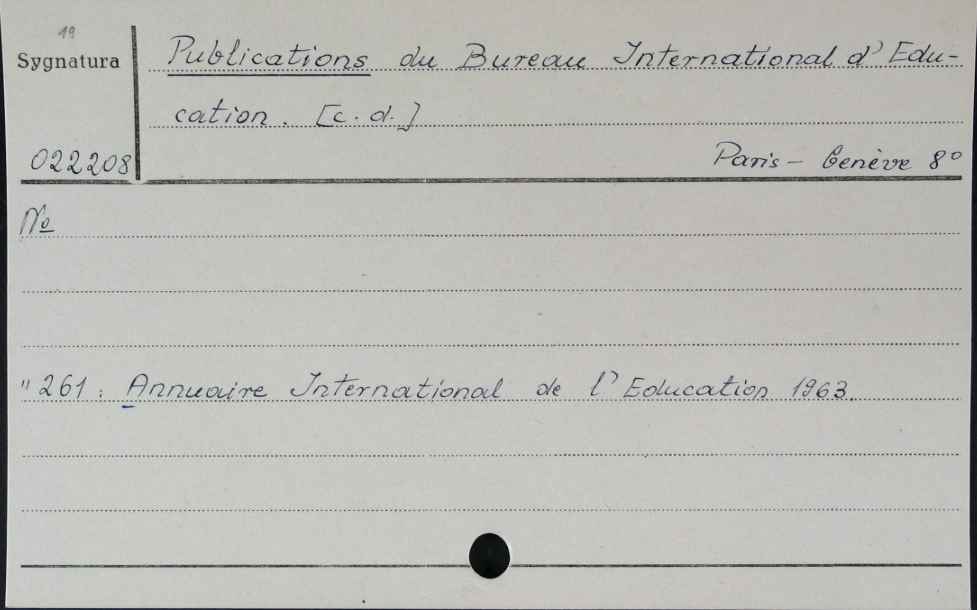 19
Sygnatura
Publications du Bureau International d'Edu-
cation. [c. d.]
022208
Paris - Genève 8°
No
" 261: Annuaire International de l'Education 1963.